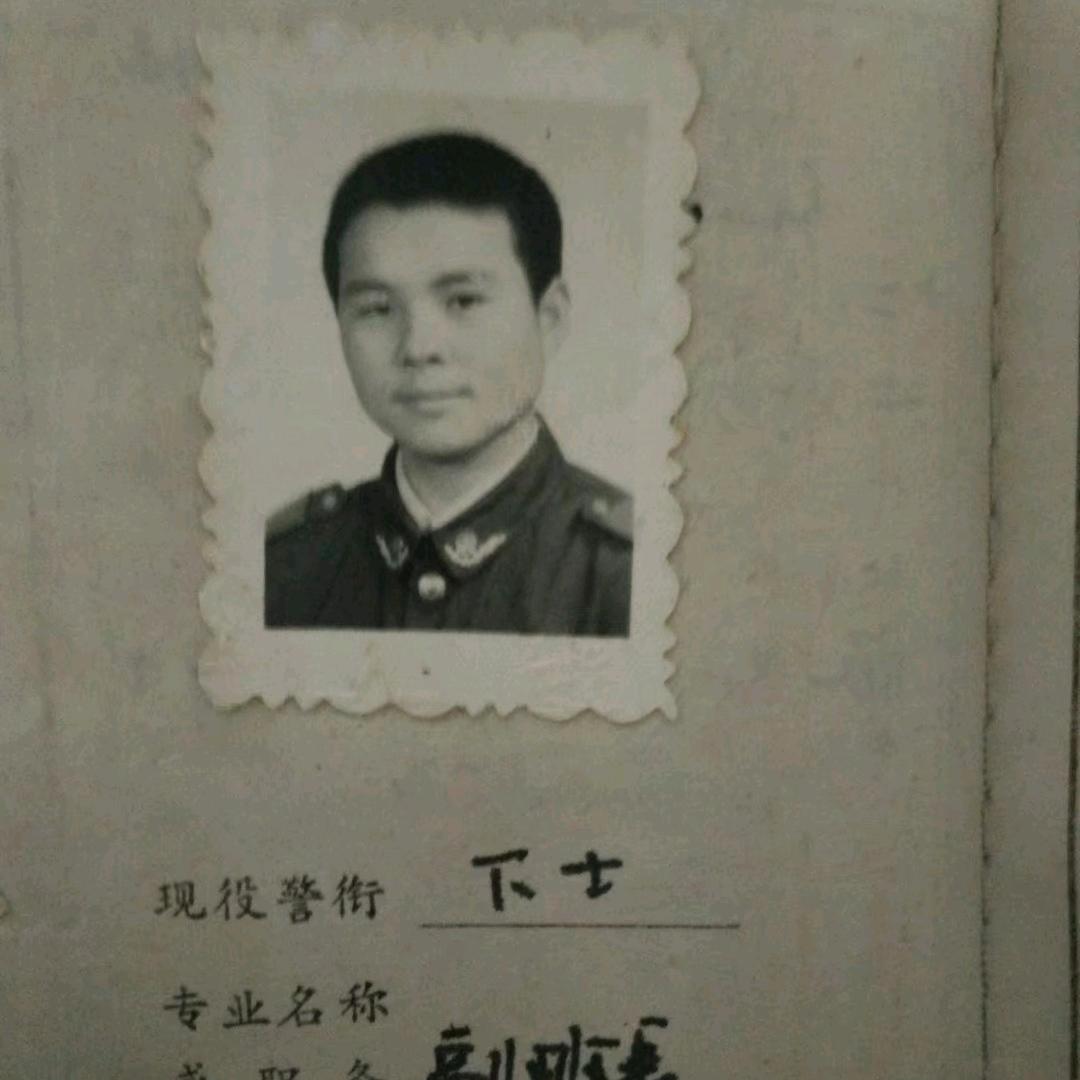 现役警衔 下士
专业名称
或职务 副班长